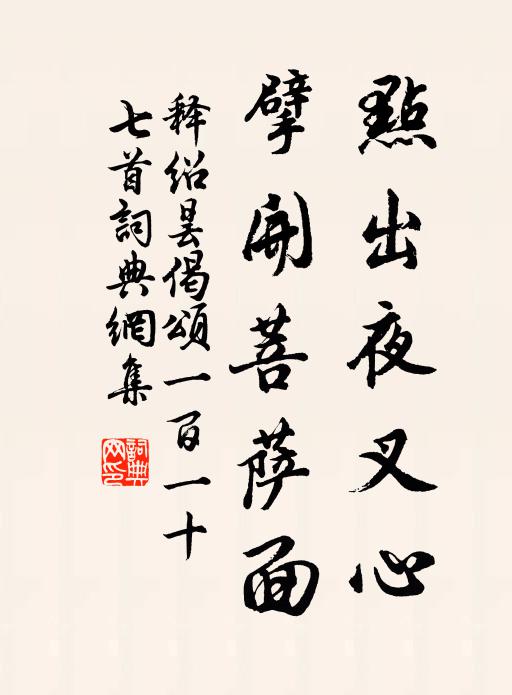 點出夜叉心
擘開菩萨面
释绍昙偈颂一百一十
七首詞典網集
詞典
网印